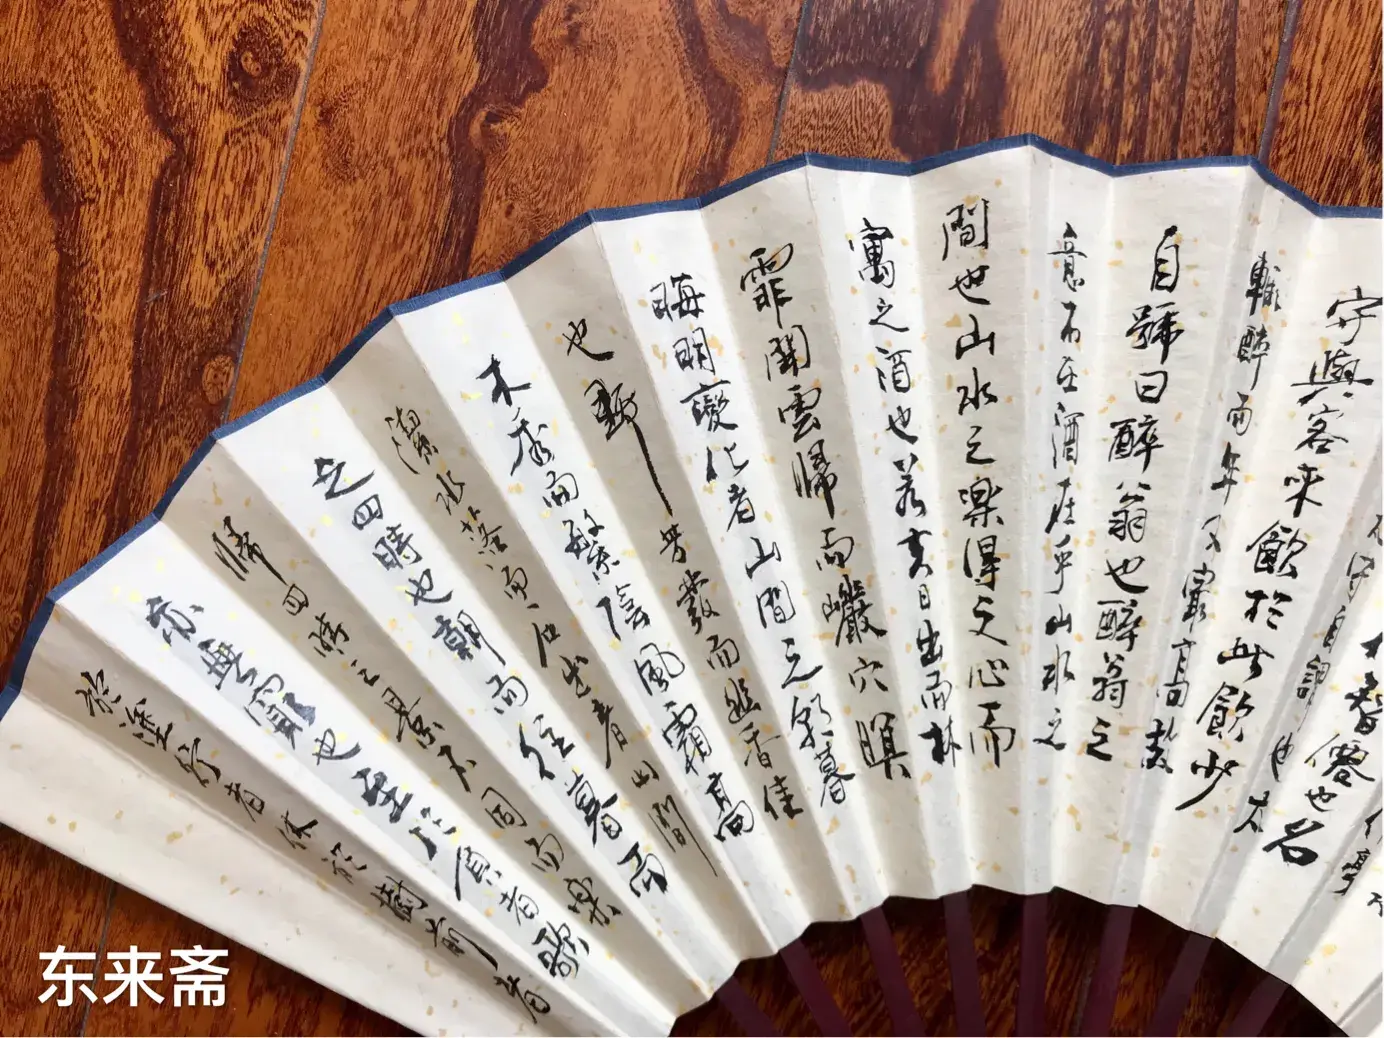 智僊也名
守自謂也太
守與客來飲於此飲少
輒醉而年又最高故
自號曰醉翁也醉翁之
意不在酒在乎山水之
間也山水之樂得之心而
寓之酒也若夫日出而林
霏開雲歸而巖穴暝
晦明變化者山間之朝暮
也野芳發而幽香佳
木秀而繁陰風霜高
潔水落而石出者山間
之四時也朝而往暮而
歸四時之景不同而樂
亦無窮也至於負者歌
於塗行者休於樹前者
东来斋